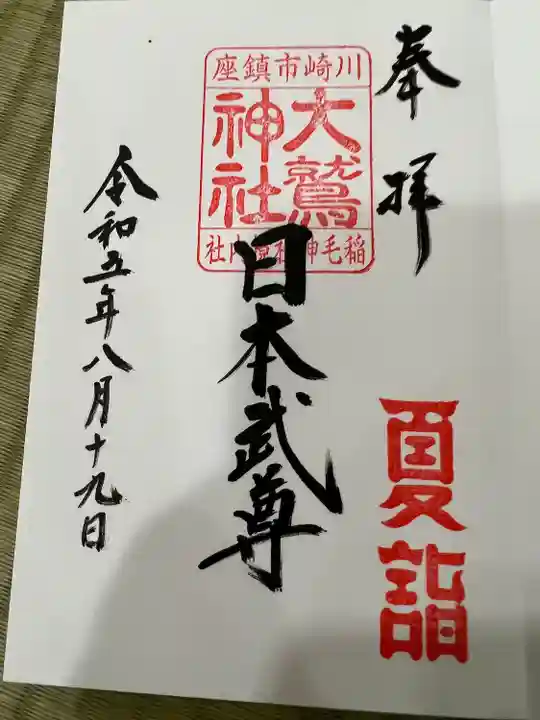 奉拝
夏詣
川崎市鎮座
大鷲
神社
稲毛神社境内社
日本武尊
令和五年八月十九日